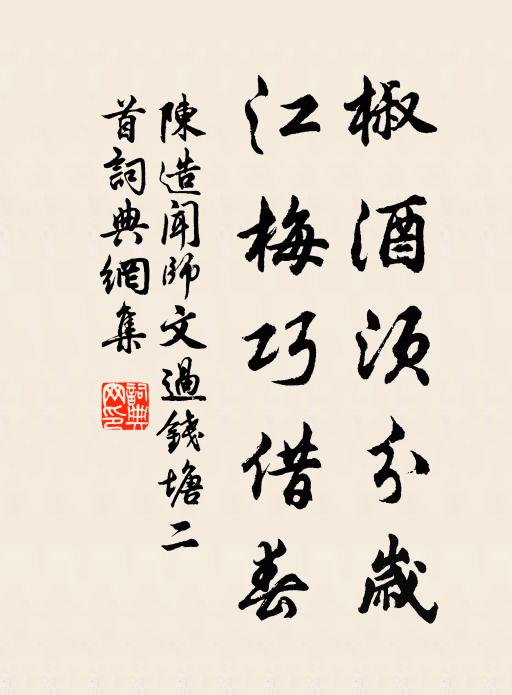 椒酒須分歲
江梅巧借春
陳造聞師文過錢塘二
首詞典網集
詞典
网印